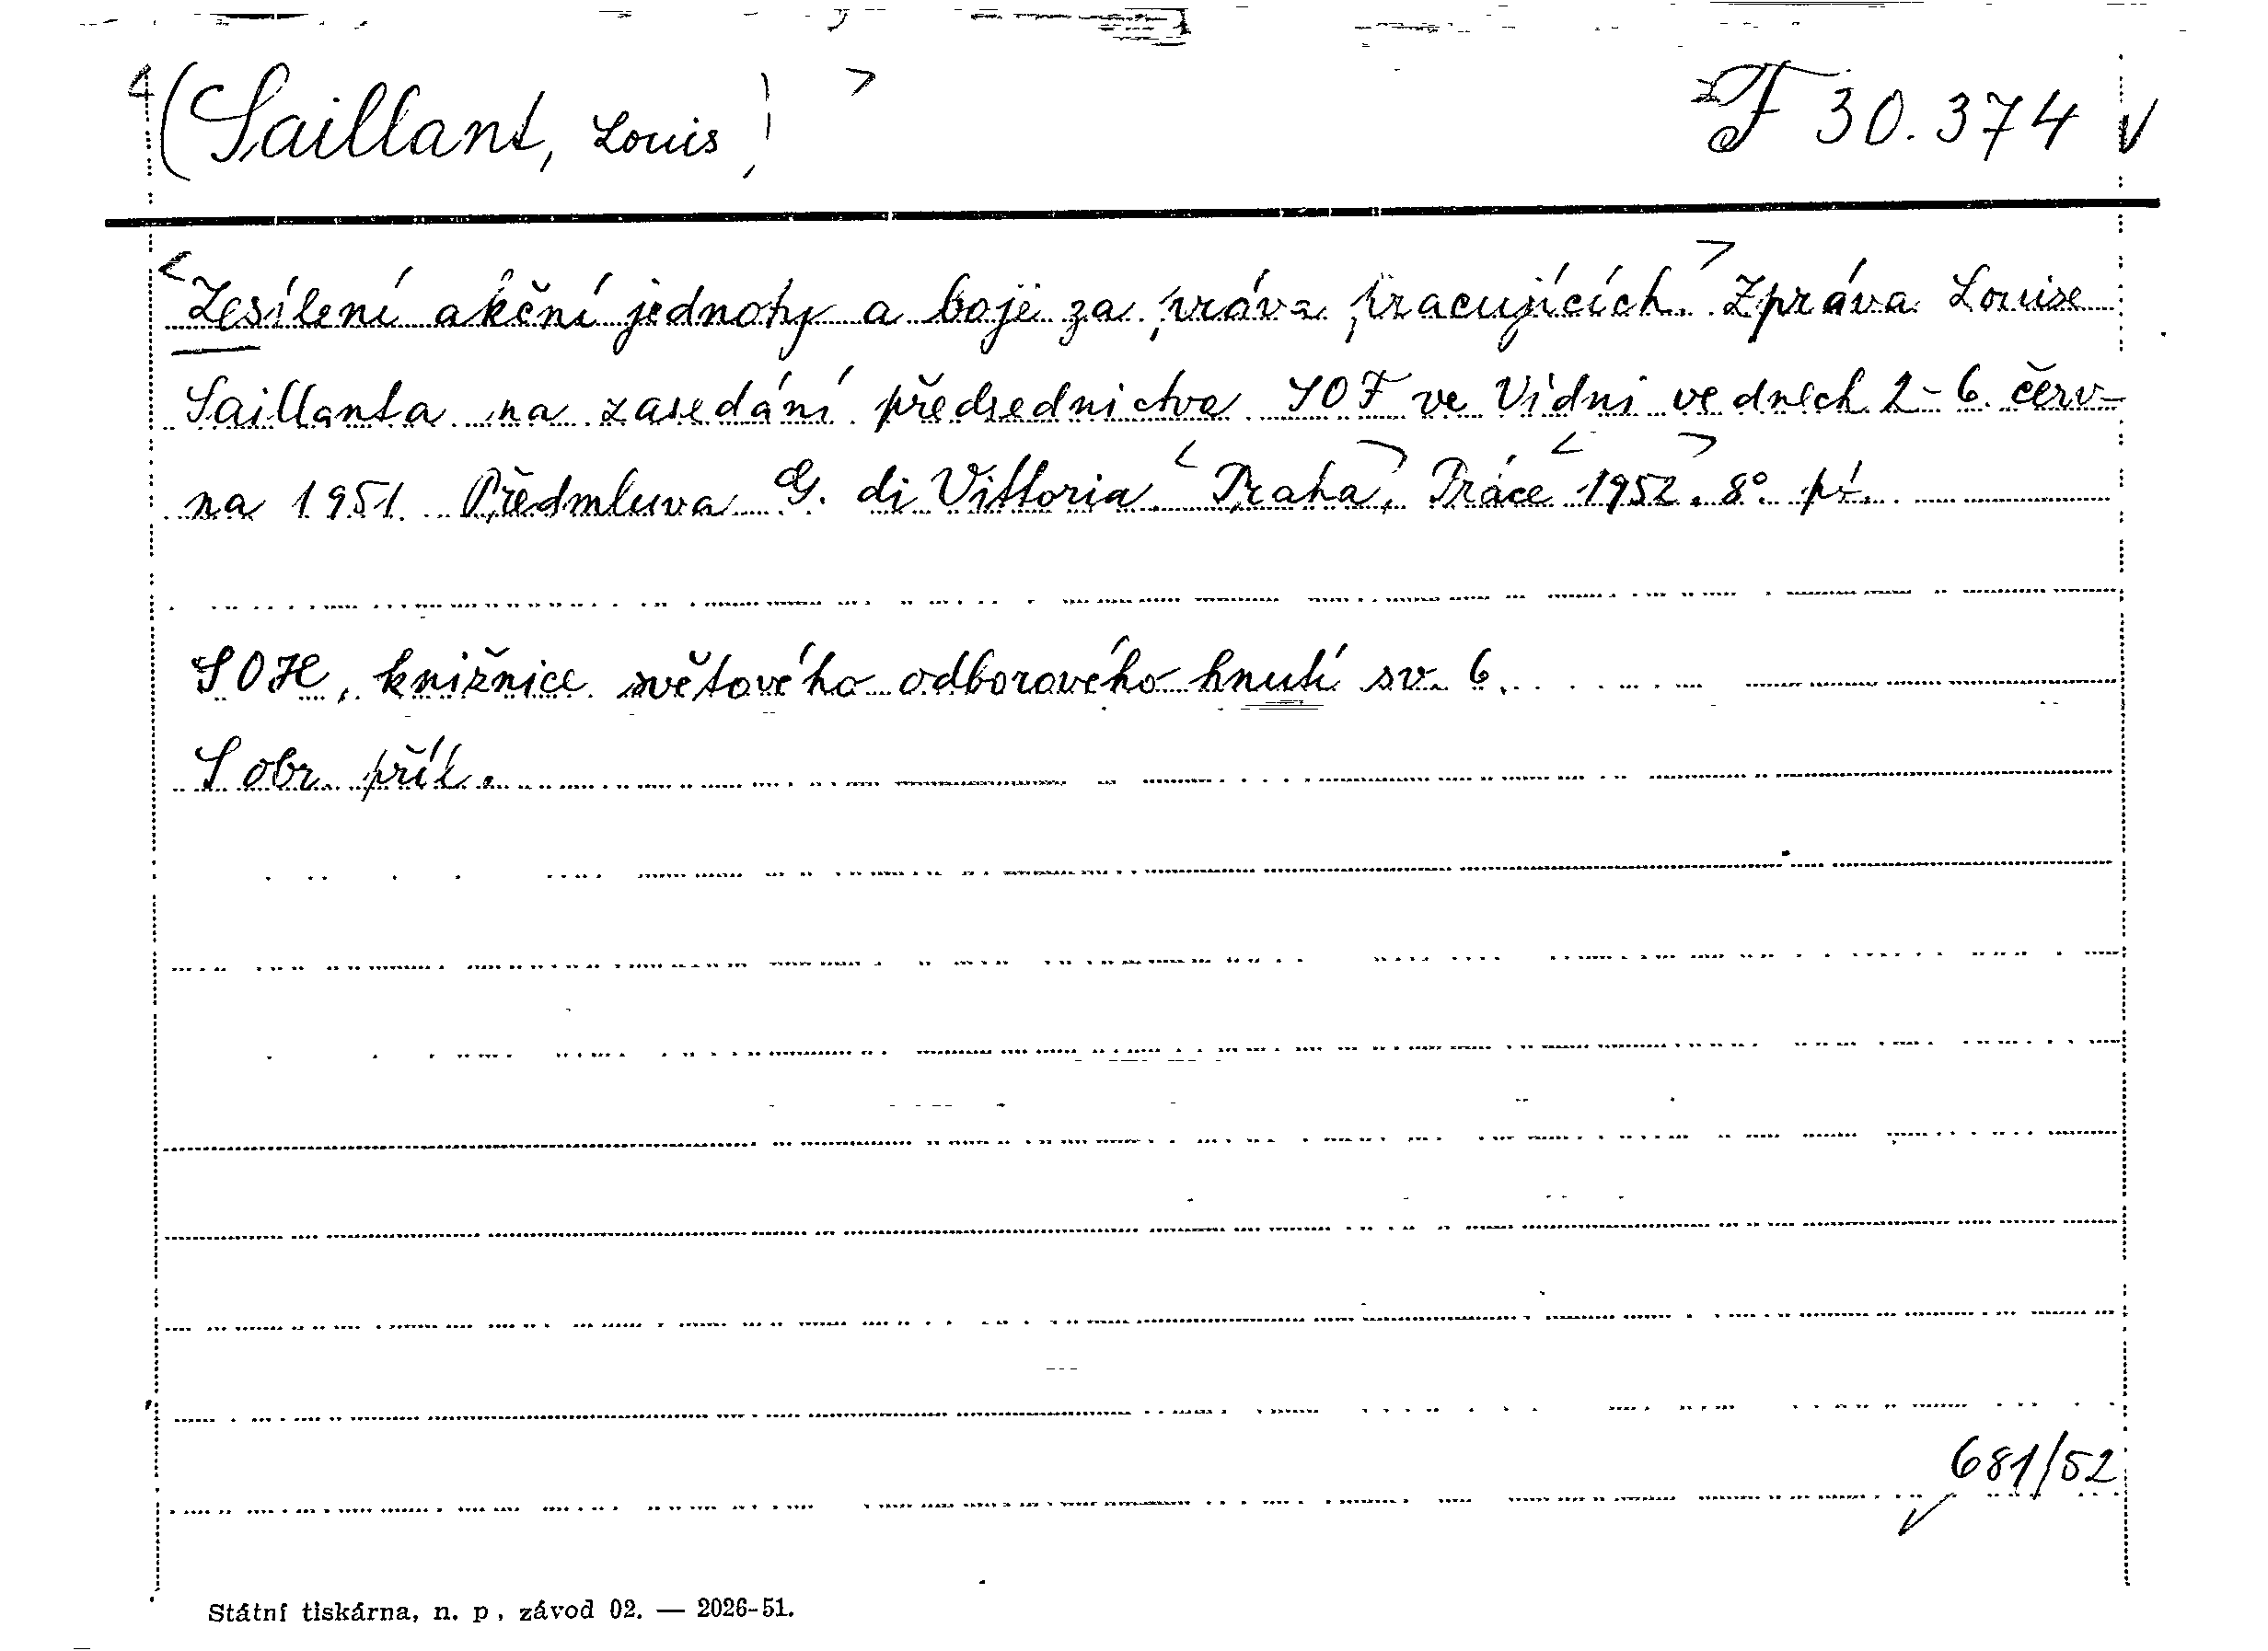 <(Saillant, Louis)> F 30.374
<Zesílení akční jednoty a boje za práva pracujících.> Zpráva Louise
Saillanta na zasedání předsednictva SOF ve Vídni ve dnech 2-6. červ-
na 1951. Předmluva G. di Vittoria. <Praha>, Práce <1952>. 8°. př.
SOH, knižnice světového odborového hnutí sv. 6.
S obr. příl.
681/52
Státní tiskárna, n. p., závod 02. — 2026-51.